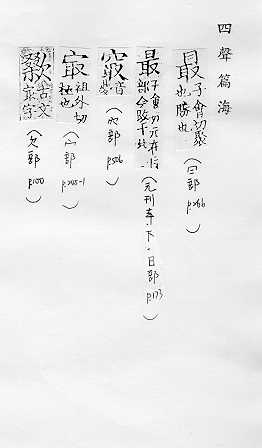 四聲篇海
最 子會切聚也勝也 (曰部 p.266)
最 子會切元在 部今改于此 (元刊本·下·日部 p.173)
音最 (穴部 p.526)
祖外切極也 (宀部 p.205-1)
古文最字 (欠部 p.100)